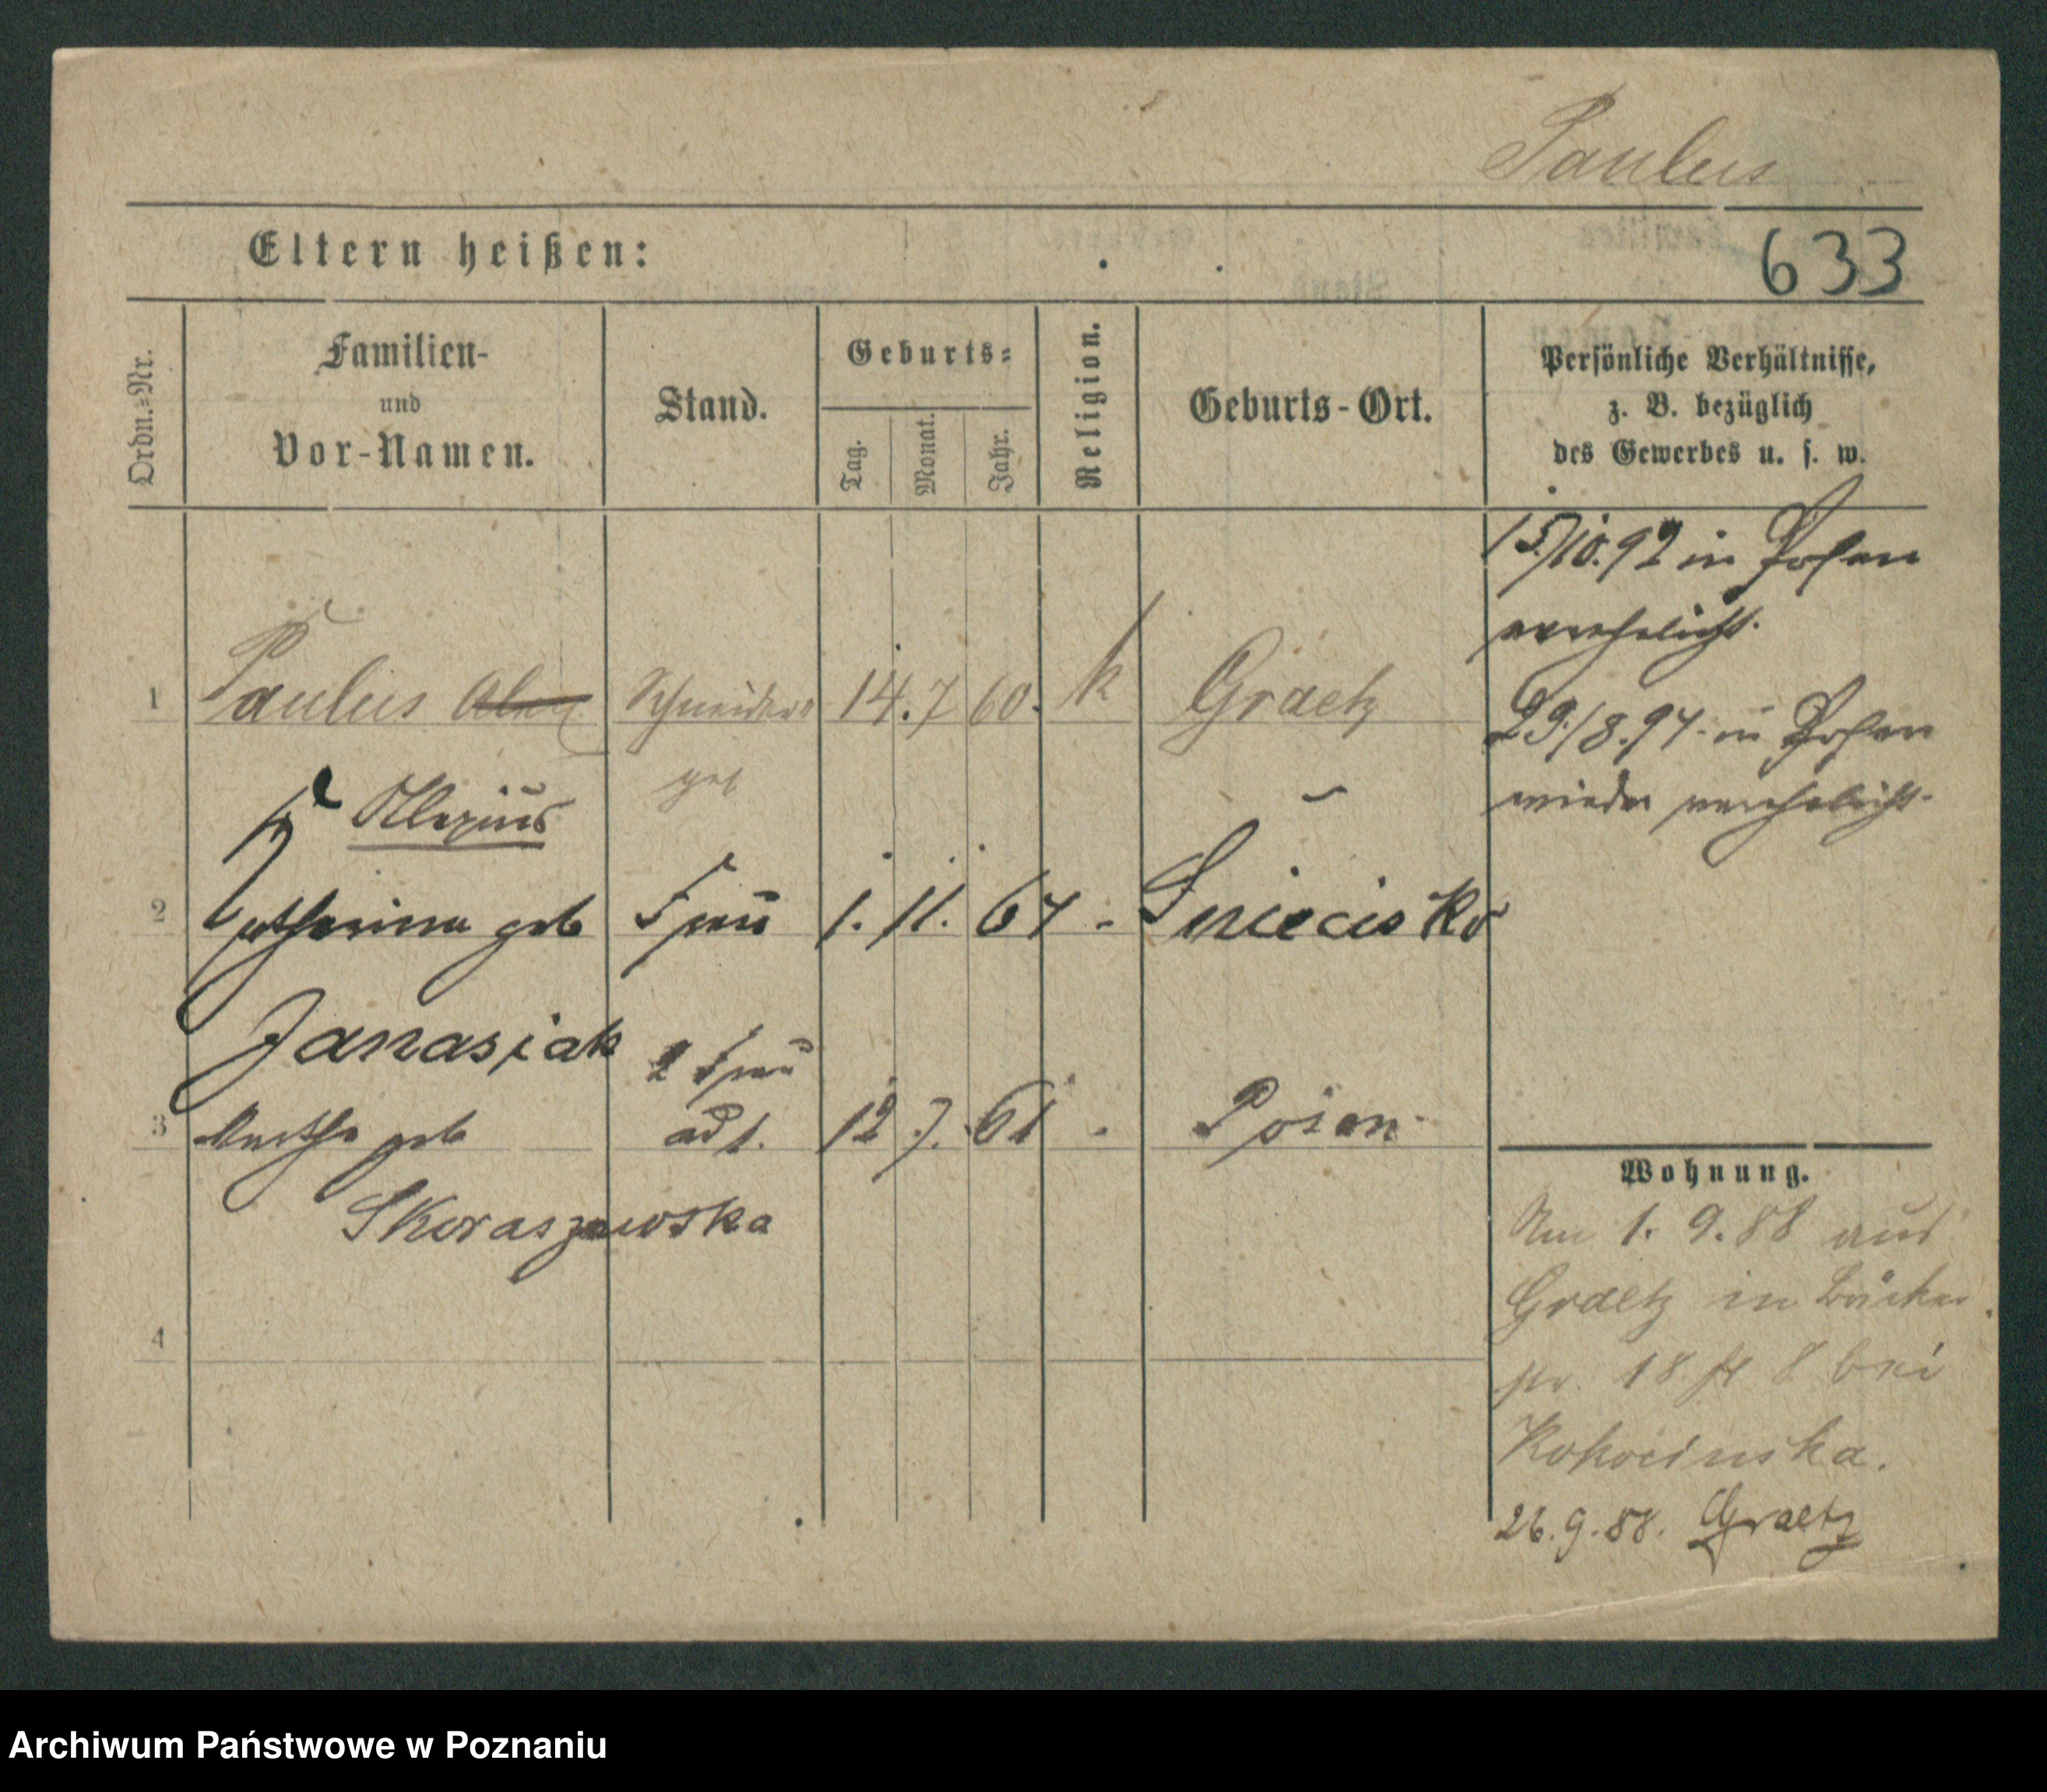 Paulus
Eltern heißen:
633
Ordn.-Nr.
Familien-
und
Vor-Namen.
Stand.
Geburts-
Tag.
Monat.
Jahr.
Religion.
Geburts-Ort.
Persönliche Verhältnisse,
z. B. bezüglich
des Gewerbes u. s. w.
15/10.92 in Posen
verehelicht.
1 Paulus Schneider 14. 7 60. k Graetz
29./8.94. in Posen
wieder verehelicht.
Alexius
2 Catharina geb Frau 1. 11. 64 - Sniecisko
Janasiak
2 Frau
3 Martha geb 12 7. 61 - Posen
Skoraszewska
4
Wohnung.
Am 1. 9. 88 aus
Graetz in Bäcker
str. 18 H 8 bei
Kokocinska.
26. 9. 88. Graetz
Archiwum Państwowe w Poznaniu